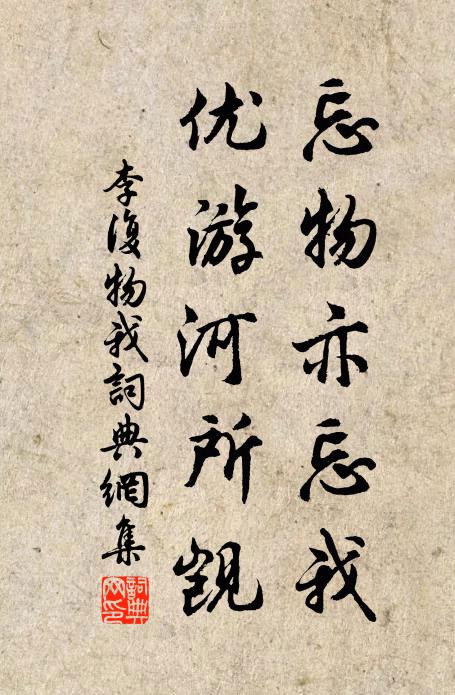 忘物亦忘我
优游河所覬
李復物我詞典網集
詞典网印